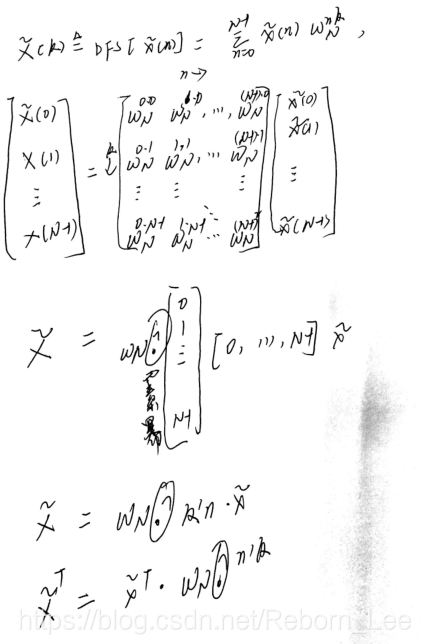 X̃(k) ≜ DFS[x̃(n)] = Σ_{n=0}^{N-1} x̃(n) W_N^{nk},
n→
[X̃(0) X(1) ⋮ X(N-1)] = k↓ [W_N^{0·0} W_N^{1·0}, ⋯, W_N^{(N-1)·0} W_N^{0·1} W_N^{1·1}, ⋯ W_N^{(N-1)·1} ⋮ ⋮ ⋮ W_N^{0·N-1} W_N^{1·N-1} ⋯ W_N^{(N-1)²}] [x̃(0) x̃(1) ⋮ x̃(N-1)]
X̃ = W_N .^ [0 1 ⋮ N-1] [0, ⋯, N-1] x̃
X̃ = W_N .^ k'n · x̃
X̃ᵀ = x̃ᵀ · W_N .^ n'k
https://blog.csdn.net/Reborn_Lee